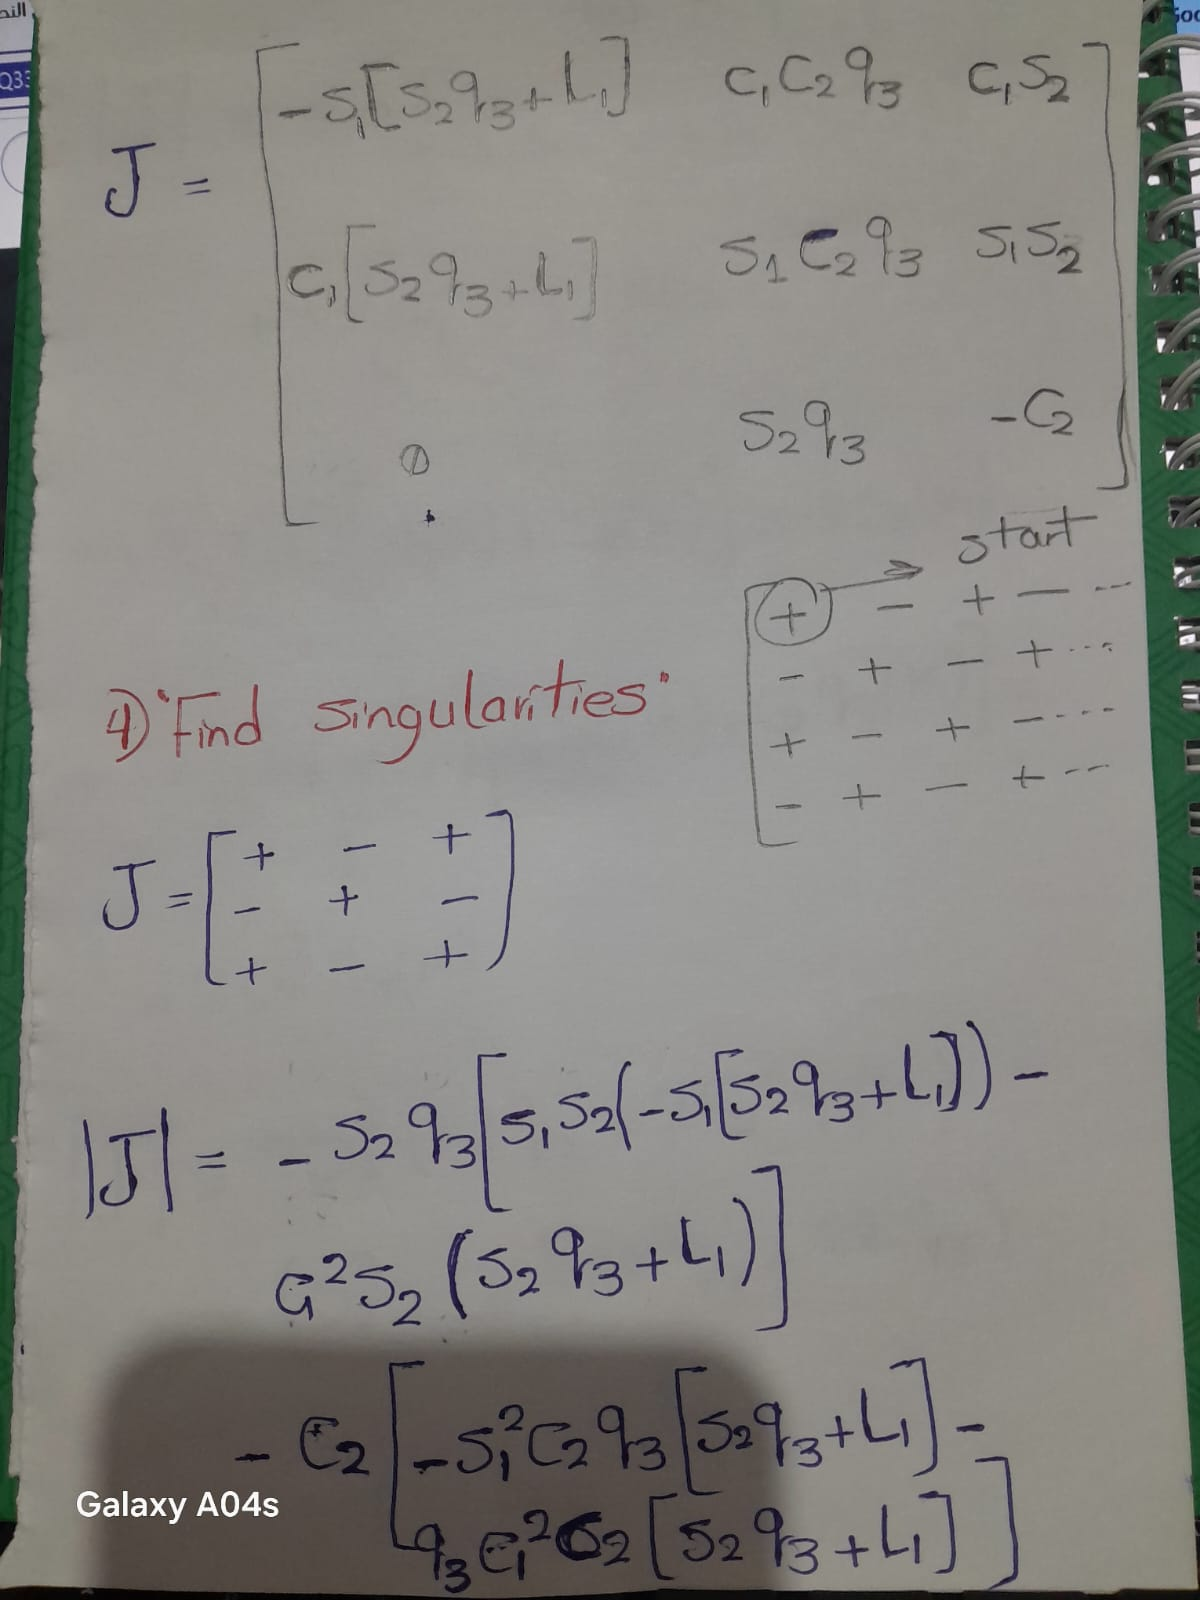 J = [ -S₁[S₂q₃+L₁] C₁C₂q₃ C₁S₂
C₁[S₂q₃+L₁] S₁C₂q₃ S₁S₂
0 S₂q₃ -C₂ ]
start
+ - + - --
- + - + ...
+ - + - ---
- + - + --
4) "Find singularities"
J = [ + - +
- + -
+ - + ]
|J| = - S₂q₃[S₁S₂(-S₁[S₂q₃+L₁]) -
C₁²S₂(S₂q₃+L₁)]
- C₂[-S₁²C₂q₃[S₂q₃+L₁] -
q₃C₁²C₂[S₂q₃+L₁]]
Galaxy A04s
Q33